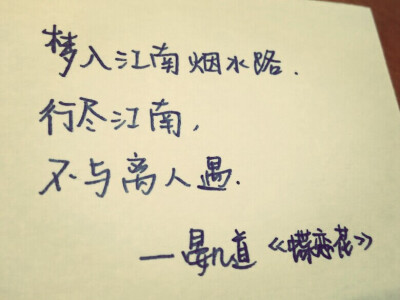 梦入江南烟水路.
行尽江南,
不与离人遇.
—晏几道《蝶恋花》